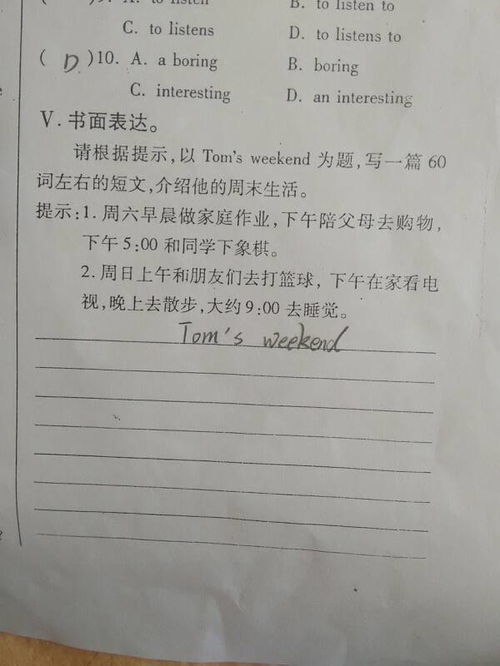 B. to listen to
C. to listens D. to listens to
( D )10. A. a boring B. boring
C. interesting D. an interesting
Ⅴ.书面表达。
请根据提示,以 Tom's weekend 为题,写一篇 60
词左右的短文,介绍他的周末生活。
提示:1. 周六早晨做家庭作业,下午陪父母去购物,
下午 5:00 和同学下象棋。
2. 周日上午和朋友们去打篮球, 下午在家看电
视,晚上去散步,大约 9:00 去睡觉。
Tom's weekend